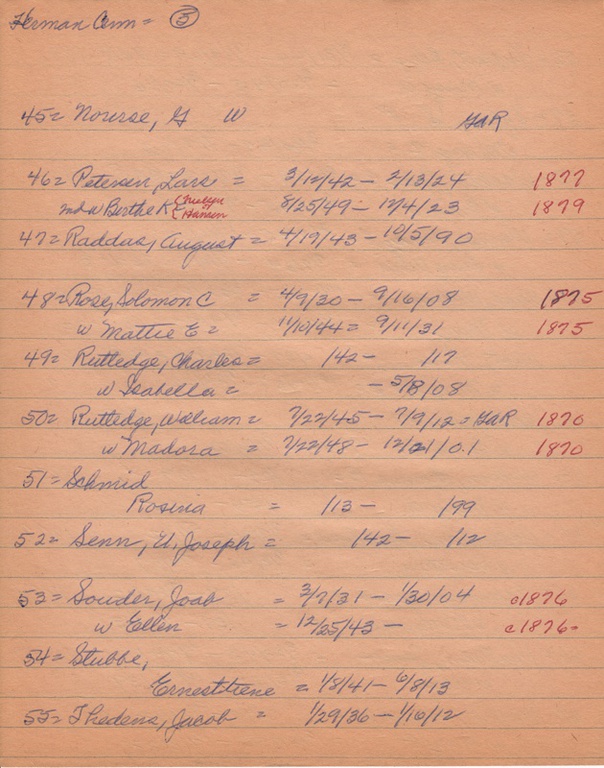 Herman Cem = 5
45 = Nourse, G W GAR
46 = Petersen, Lars = 3/12/42 - 2/13/24 1877
2nd w Birthe K 8/25/49 - 12/4/23 1879
Hansen
47 = Raddus, August = 4/19/43 - 10/5/90
48 = Rose, Solomon C = 4/9/30 - 9/16/08 1875
w Mattie E = 11/10/44 = 9/11/31 1875
49 = Rutledge, Charles = /42 - /17
w Isabella = - 5/8/08
50 = Rutledge, William = 7/22/45 - 7/9/12 = GAR 1870
w Madora = 7/22/48 - 12/21/01 1870
51 = Schmid
Rosina = /13 - /99
52 = Senn, U. Joseph = /42 - /12
53 = Souder, Joab = 3/7/31 - 1/30/04 c1876
w Ellen = 12/25/43 - c1876 =
54 = Stubbe,
Ernestitrene = 1/8/41 - 6/8/13
55 = Thedens, Jacob = 1/29/36 - 1/16/12